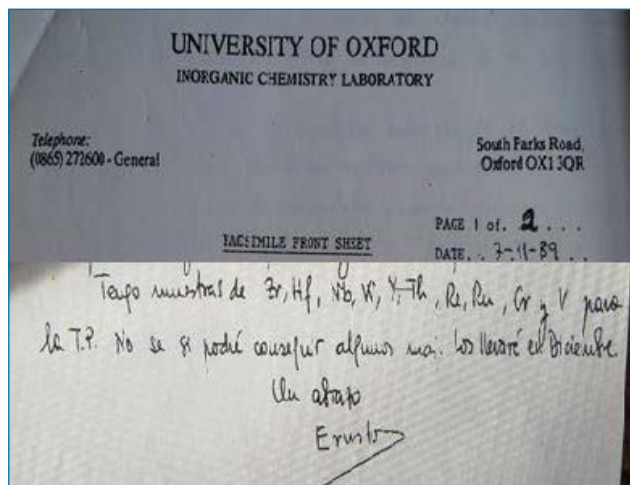 UNIVERSITY OF OXFORD
INORGANIC CHEMISTRY LABORATORY
Telephone:
(0865) 272600 - General
South Parks Road,
Oxford OX1 3QR
PAGE 1 of. 2 . . .
FACSIMILE FRONT SHEET
DATE. . 7-11-89 . .
Tengo muestras de Zr, Hf, Nb, W, Y, Th, Re, Ru, Cr y V para
la T.P. No se si podré conseguir algunos mas. Los llevaré en Diciembre
Un abrazo
Ernesto